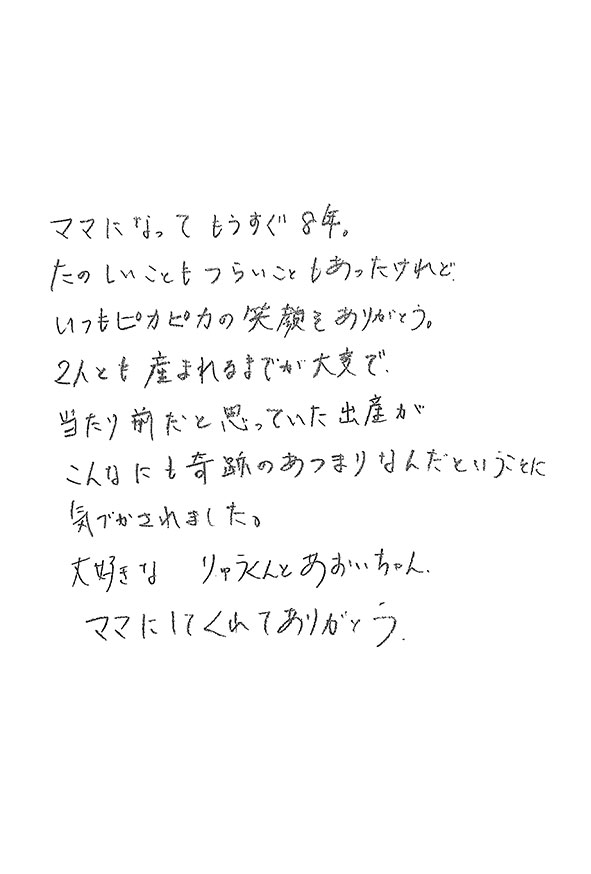 ママになって もうすぐ 8年。
たのしいことも つらいことも あったけれど
いつもピカピカの 笑顔を ありがとう。
2人とも 産まれるまでが 大変で.
当たり前だと 思っていた 出産が
こんなにも 奇跡の あつまりなんだということに
気づかされました。
大好きな りゅうくんと あおいちゃん.
ママにしてくれて ありがとう.